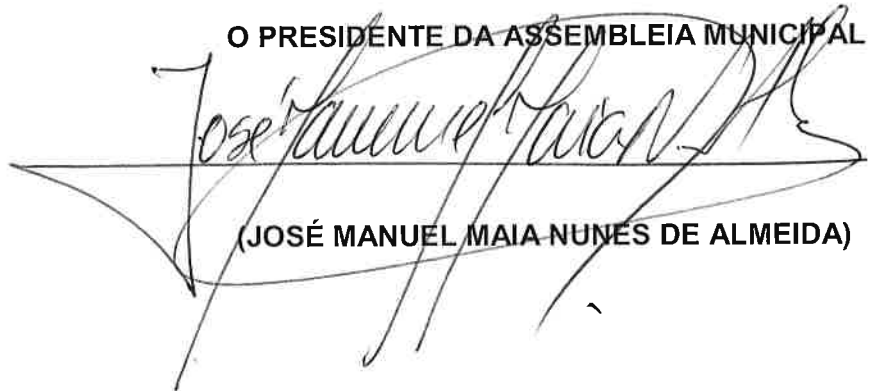 O PRESIDENTE DA ASSEMBLEIA MUNICIPAL
José Manuel Maia N. D'Al
(JOSÉ MANUEL MAIA NUNES DE ALMEIDA)